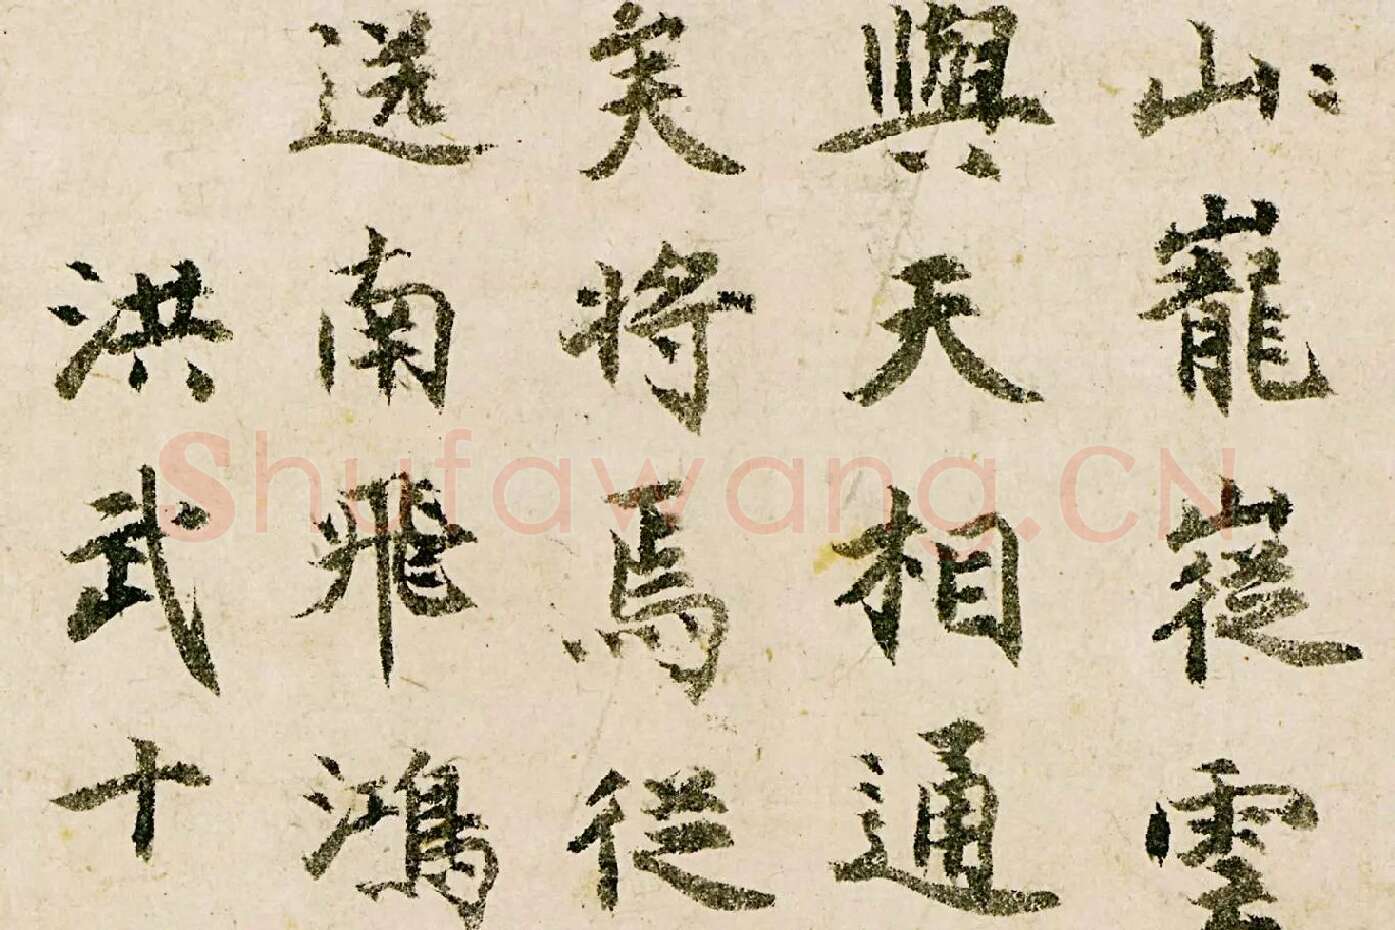 山〻巃嵸雲
與天相通
矣將焉從
送南飛鴻
洪武十
Shufawang.CN